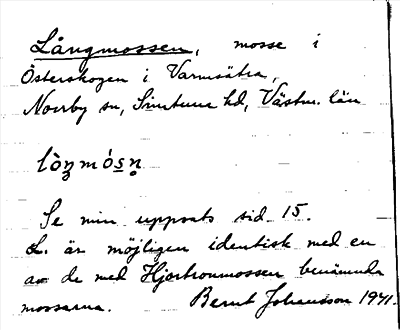 Långmossen, mosse i
Österskogen i Varmsätra,
Norrby sn, Simtuna hd, Västm. län
lòŋmós̲n̥
Se min uppsats sid. 15.
L. är möjligen identisk med en
av de med Hjortronmossen benämnda
mossarna. Bernt Johansson 1941.